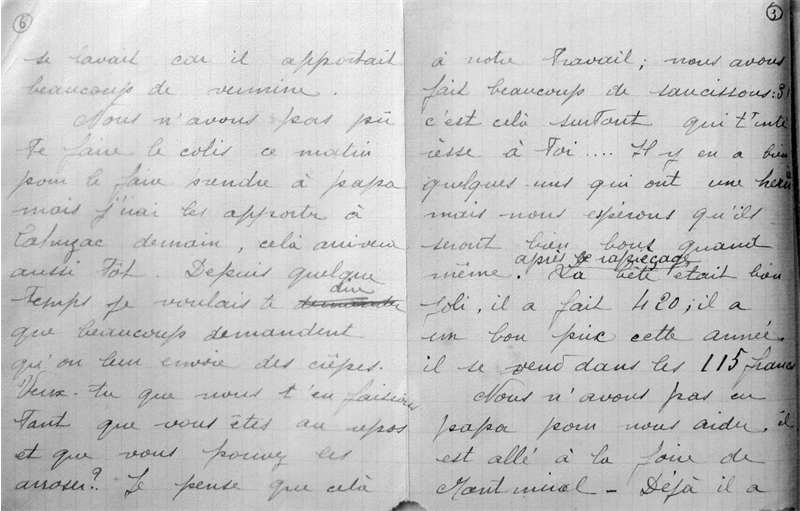 6
se lavait car il apportait
beaucoup de vermine.
Nous n'avons pas pû
te faire le colis ce matin
pour le faire prendre à papa
mais j'irai les apporter à
Cahuzac demain, celà arrivera
aussi tôt. Depuis quelque
temps je voulais te dire
que beaucoup demandent
qu'on leur envoie des crêpes.
Veux-tu que nous t'en faisions
tant que vous êtes au repos
et que vous pouvez les
arroser? Je pense que celà
3
à notre travail; nous avons
fait beaucoup de saucissons: 3
c'est celà surtout qui t'inté
resse à toi .... Il y en a bien
quelques-uns qui ont une
mais nous espérons qu'ils
seront bien bons quand
même. après le rapiéçage La bête était bien
joli, il a fait 420; il a
un bon prix cette année.
il se vend dans les 115 francs
Nous n'avons pas eu
papa pour nous aider, il
est allé à la foire de
Montmiral - Déjà il a